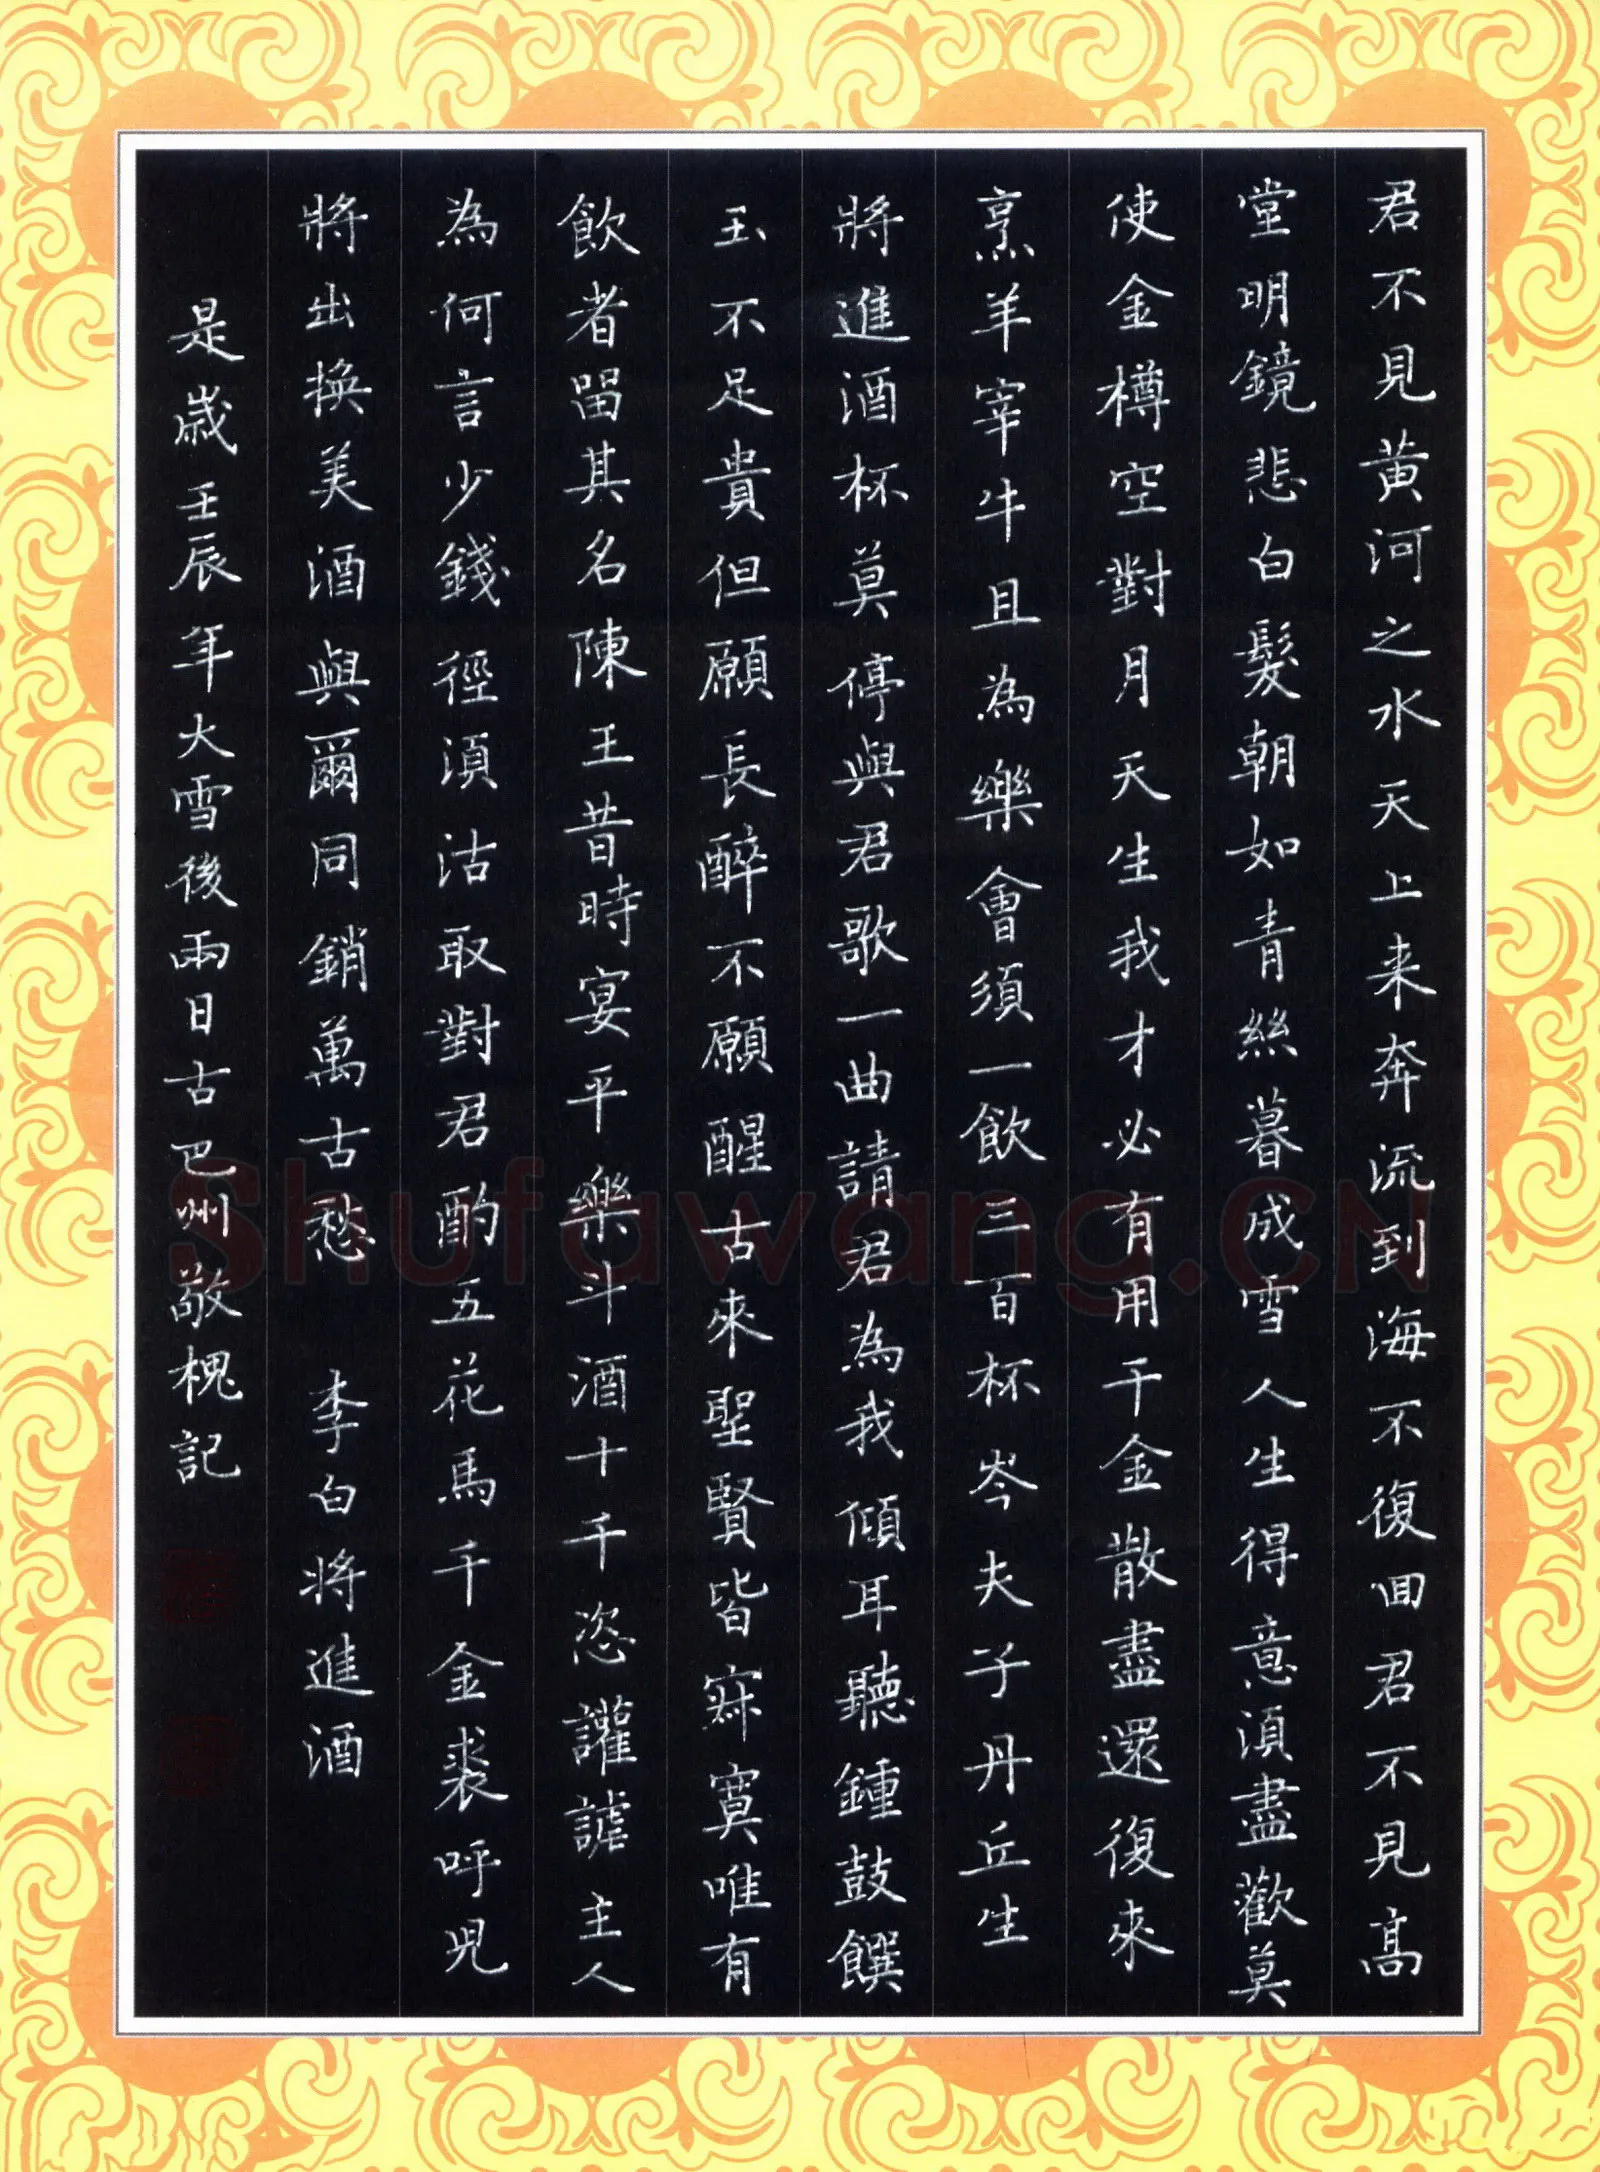 君不見黄河之水天上来奔流到海不復回君不見髙
堂明鏡悲白髮朝如青絲暮成雪人生得意湏盡歡莫
使金樽空對月天生我才必有用千金散盡還復來
烹羊宰牛且為樂會須一飲三百杯岑夫子丹丘生
將進酒杯莫停與君歌一曲請君為我傾耳聽鍾鼓饌
玉不足貴但願長醉不願醒古來聖賢皆寂寞唯有
飲者留其名陳王昔時宴平樂斗酒十千恣讙謔主人
為何言少錢徑湏沽取對君酌五花馬千金裘呼兒
將出換美酒與爾同銷萬古愁 李白將進酒
是歲壬辰年大雪後兩日古巴州敬槐記
Shufawang.CN